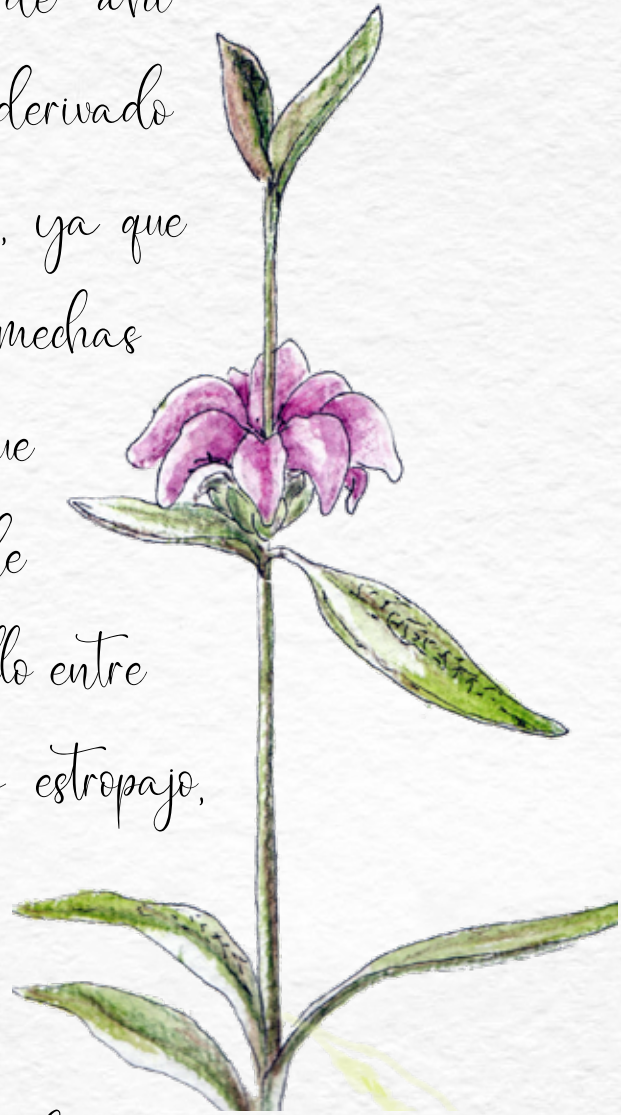 derivado
, ya que
mechas
ue
le
llo entre
estropajo,